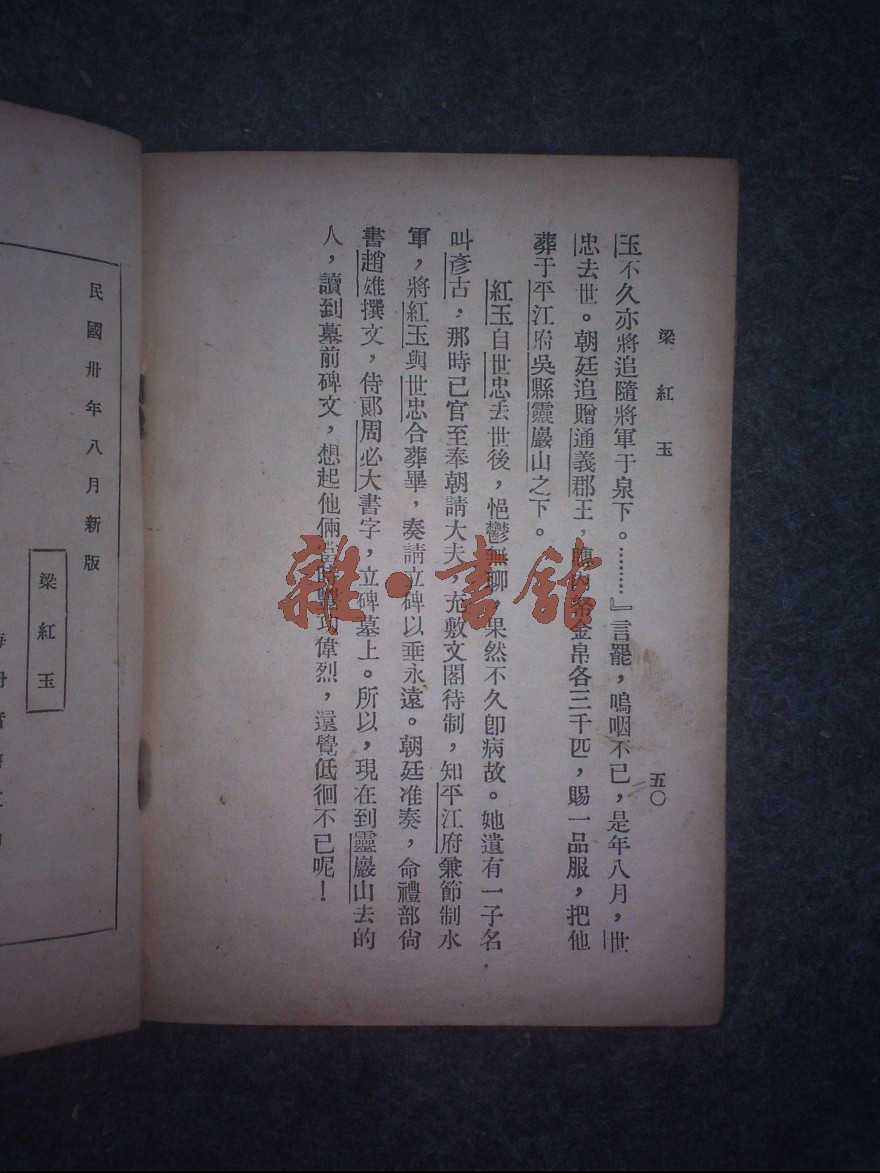 梁紅玉
五〇
玉不久亦將追隨將軍于泉下。………』言罷，嗚咽不已，是年八月，世
忠去世。朝廷追贈通義郡王，金帛各三千匹，賜一品服，把他
葬于平江府吳縣靈巖山之下。
紅玉自世忠去世後，悒鬱無聊，果然不久卽病故。她遺有一子名
叫彥古，那時已官至奉朝請大夫，充敷文閣待制，知平江府兼節制水
軍，將紅玉與世忠合葬畢，奏請立碑以垂永遠。朝廷准奏，命禮部尙
書趙雄撰文，侍郞周必大書字，立碑墓上。所以，現在到靈巖山去的
人，讀到墓前碑文，想起他倆當偉烈，還覺低徊不已呢！
民國卅年八月新版
梁紅玉
雜·書舘